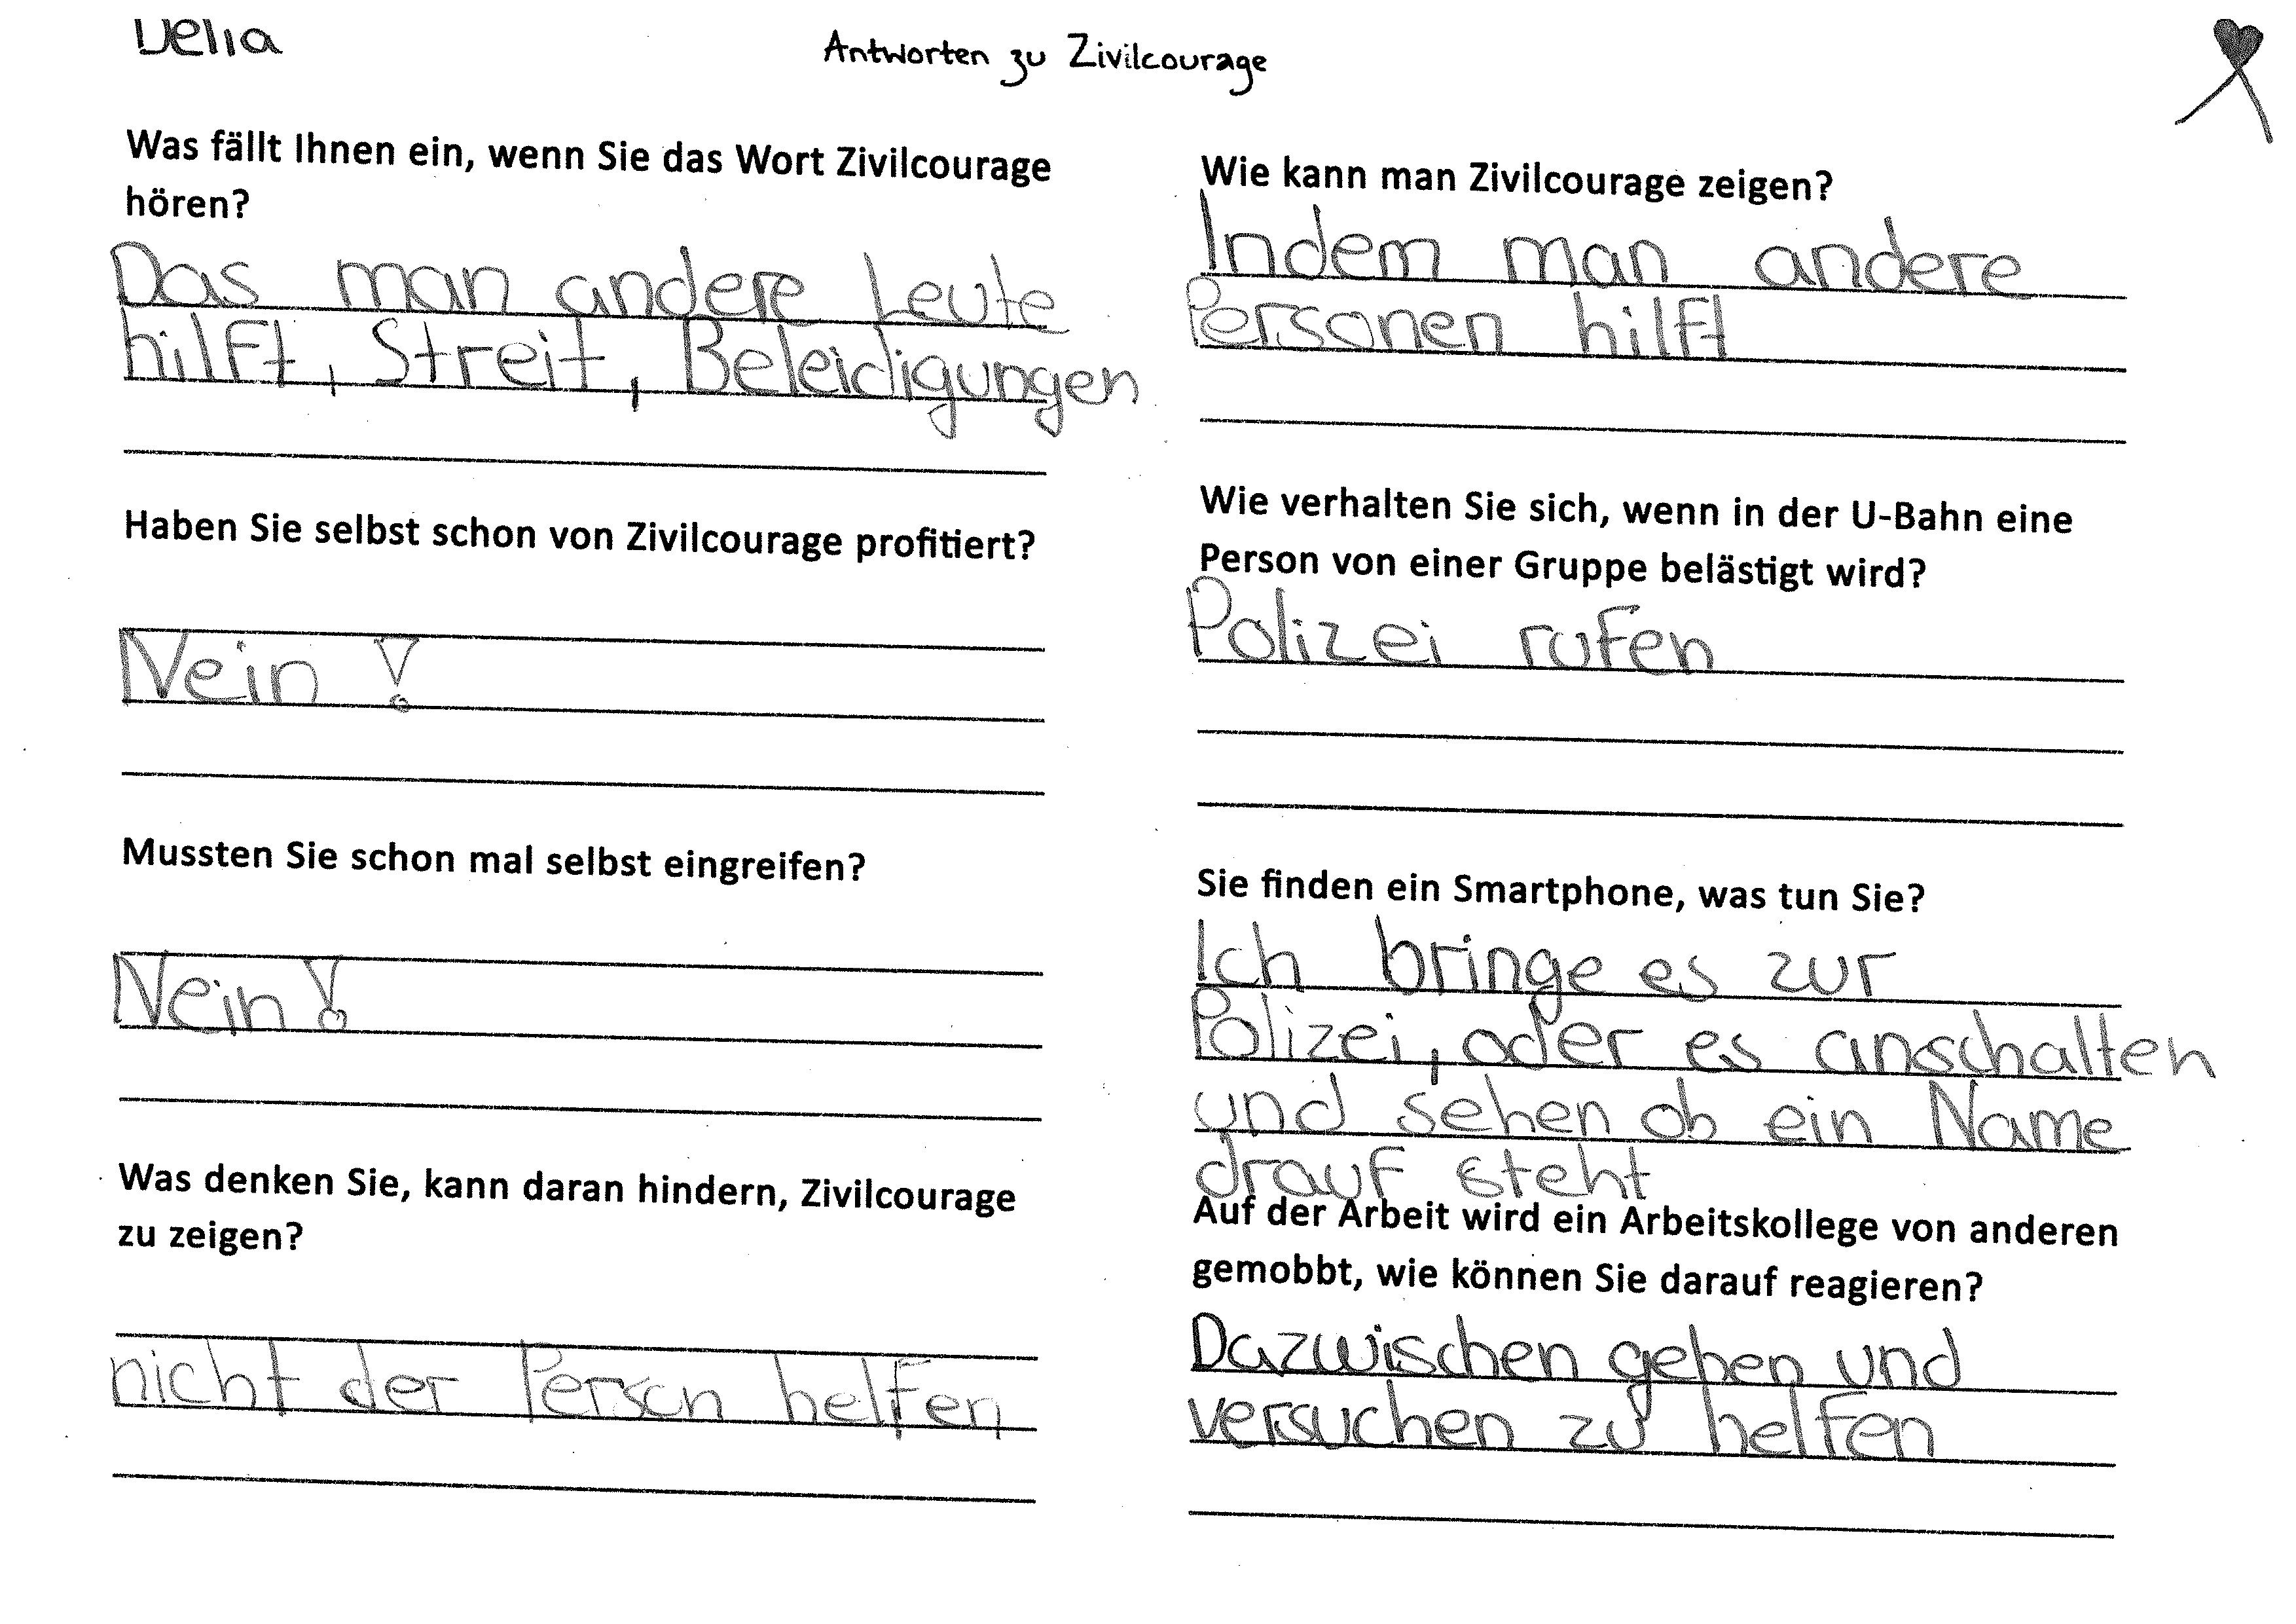 Delia
Antworten zu Zivilcourage
Was fällt Ihnen ein, wenn Sie das Wort Zivilcourage
hören?
Das man andere Leute
hilft, Streit, Beleidigungen
Haben Sie selbst schon von Zivilcourage profitiert?
Nein!
Mussten Sie schon mal selbst eingreifen?
Nein!
Was denken Sie, kann daran hindern, Zivilcourage
zu zeigen?
nicht der Person helfen
Wie kann man Zivilcourage zeigen?
Indem man andere
Personen hilft
Wie verhalten Sie sich, wenn in der U-Bahn eine
Person von einer Gruppe belästigt wird?
Polizei rufen
Sie finden ein Smartphone, was tun Sie?
Ich bringe es zur
Polizei, oder es anschalten
und sehen ob ein Name
drauf steht
Auf der Arbeit wird ein Arbeitskollege von anderen
gemobbt, wie können Sie darauf reagieren?
Dazwischen gehen und
versuchen zu helfen